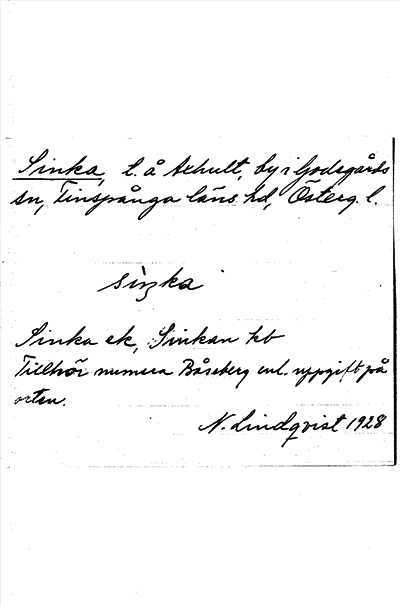 Sinka, l. å Axhult, by i Godegårds
sn, Finspånga läns hd, Österg. l.
sìŋka
Sinka ek, Sinkan kb
Tillhör numera Båseberg enl. uppgift på
orten.
N. Lindqvist 1928